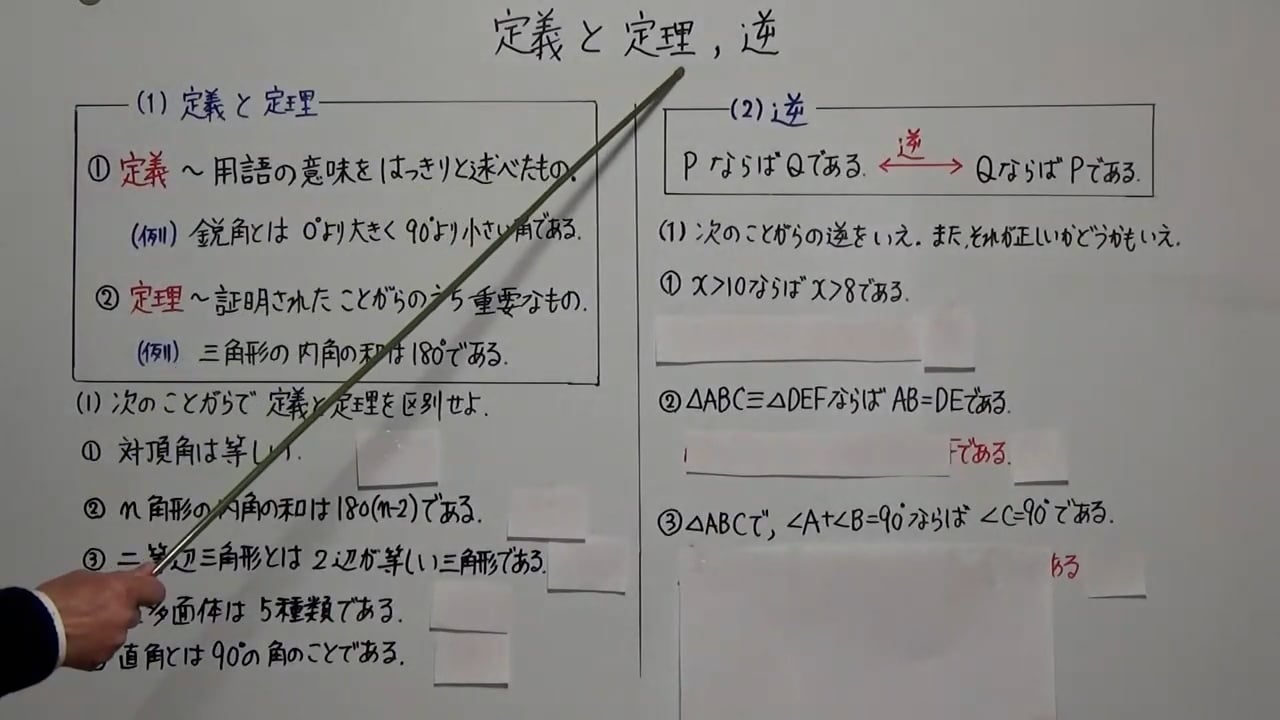 定義と定理，逆
(1) 定義と定理
① 定義 ～ 用語の意味をはっきりと述べたもの.
(例) 鋭角とは 0°より大きく 90°より小さい角である.
② 定理 ～ 証明されたことがらのうち重要なもの.
(例) 三角形の内角の和は180°である.
(1) 次のことがらで 定義と定理を区別せよ.
① 対頂角は等しい.
② n角形の内角の和は180(n-2)である.
③ 二等辺三角形とは 2辺が等しい三角形である.
多面体は 5種類である.
直角とは 90°の角のことである.
(2) 逆
PならばQである. 逆 QならばPである.
(1) 次のことがらの逆をいえ. また,それが正しいかどうかもいえ.
① x>10ならば x>8である.
② △ABC≡△DEFならば AB=DEである.
である.
③ △ABCで, ∠A+∠B=90°ならば ∠C=90°である.
ある